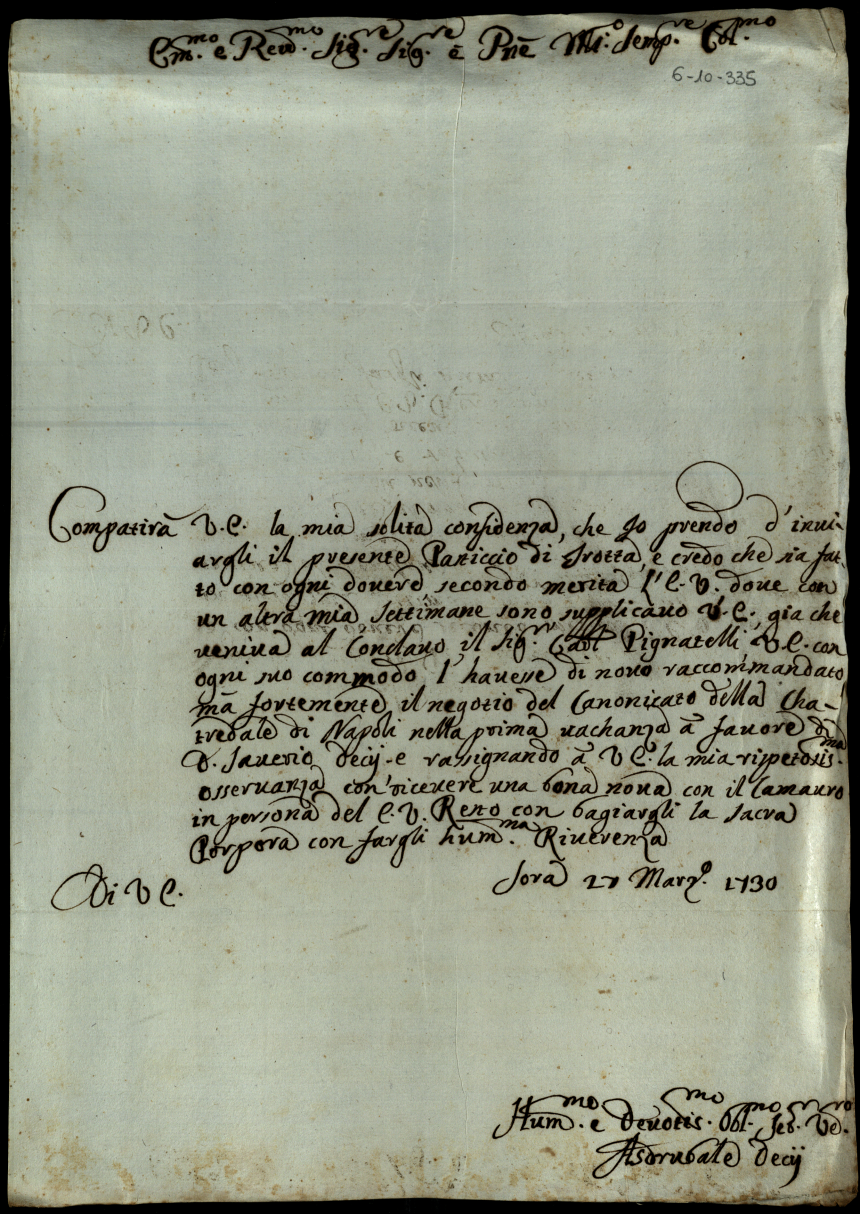 Em.mo e Rev.mo Sig.re Sig.re è Pnè Mi.o Semp.re Col.mo
6-10-335
Compatirà V.E. la mia solita confidenza, che Io prendo d'invi-
argli il presente Pasticcio di Trotta, e credo che sia fat-
to con ogni dovere, secondo merita l'E.V. dove con
un altra mia settimane sono supplicavo V.E. gia che
veniva al Conclavo il Sig.r Card Pignatelli V.E. con
ogni suo commodo l'havesse di novo raccommandato
mà fortemente, il negotio del Canonicato della Cha-
tredale di Napoli nella prima vachanza à favore di
D. Saverio Decij - e rassignando à V E. la mia rispetosis.ma
osservanza con ricevere una bona nova con il Camauro
in persona del E.V. Resto con bagiargli la Sacra
Porpora con fargli hum.ma Riverenza
Di V E.
Sora 27 Marz.o 1730
Hum.mo e Devotis.mo Obl.mo Se.r Ve.ro
Asdrubale Decij